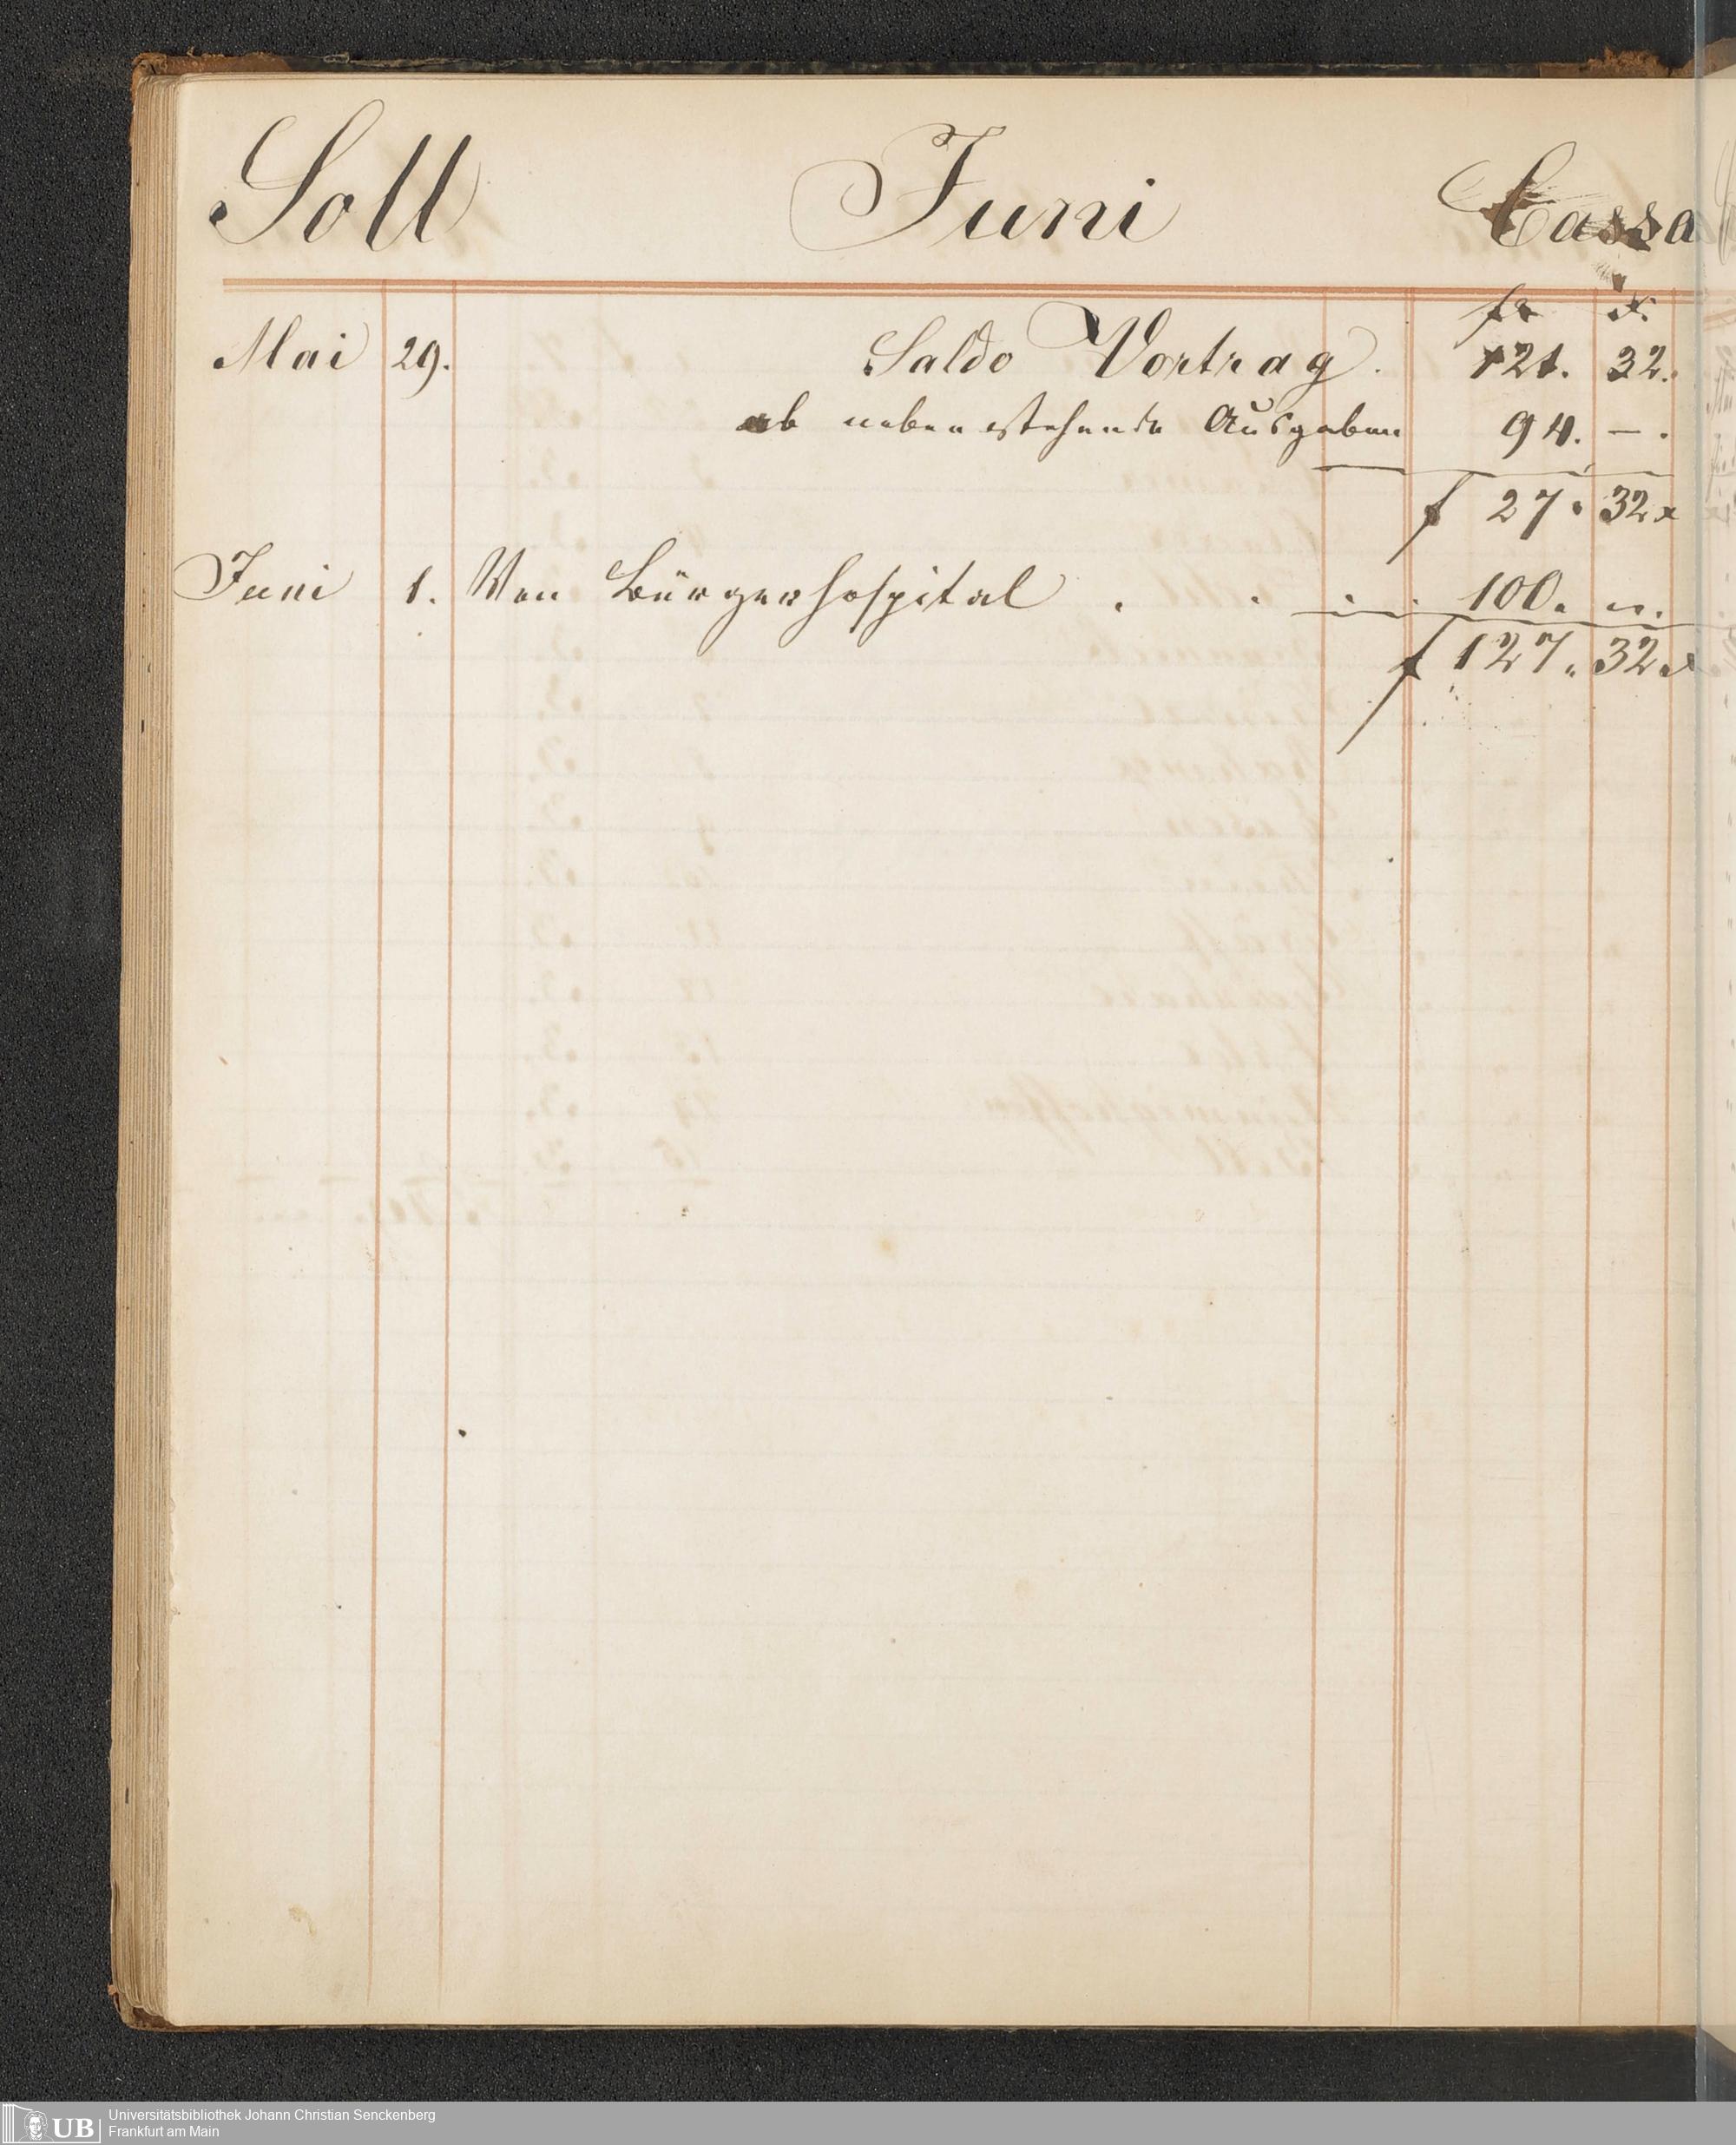 Soll Juni Cassa
fr x.
Mai 29. Saldo Vortrag. 121. 32.
ab nebenstehende Ausgaben 94. — .
f 27. 32 x
Juni 1. Von Bürgerhospital . . . . 100. „.
f 127. 32 x
UB Universitätsbibliothek Johann Christian Senckenberg
Frankfurt am Main